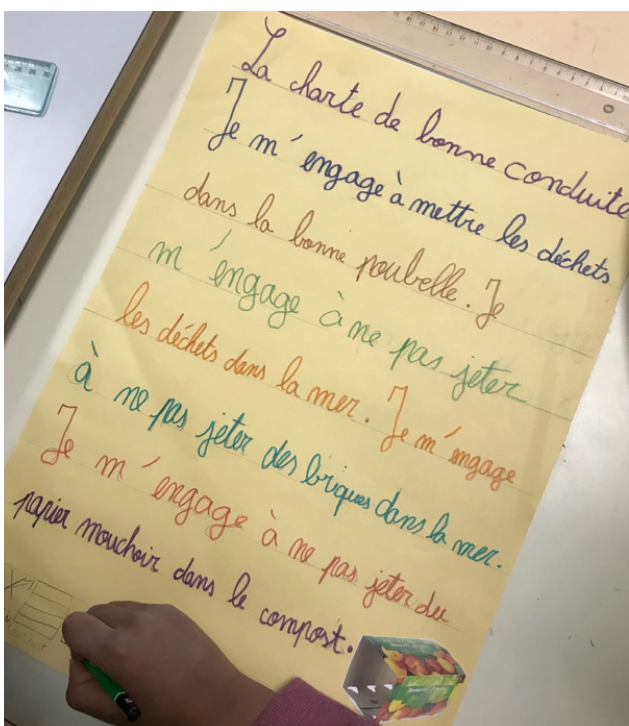 La charte de bonne conduite
Je m'engage à mettre les déchets
dans la bonne poubelle. Je
m'engage à ne pas jeter
les déchets dans la mer. Je m'engage
à ne pas jeter des briques dans la mer.
Je m'engage à ne pas jeter du
papier mouchoir dans le compost.